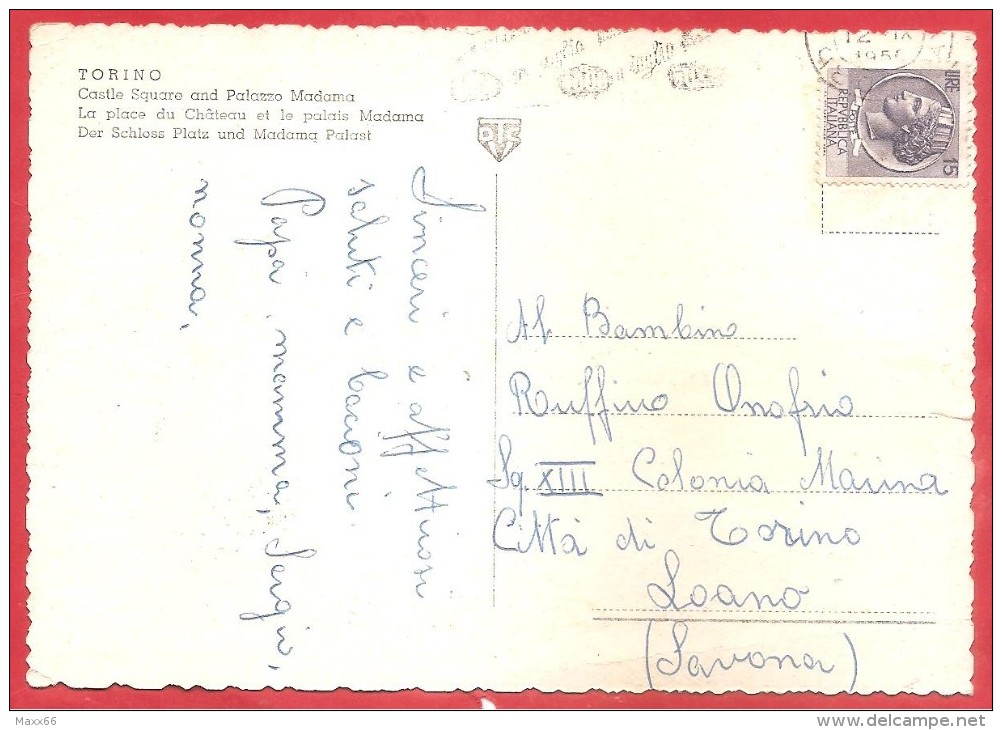 TORINO
Castle Square and Palazzo Madama
La place du Château et le palais Madama
Der Schloss Platz und Madama Palast
Sinceri e affettuosi
saluti e bacioni
Papà, mamma, Sergio,
nonna.
12 IX
LIRE 15
REPVBBLICA
ITALIANA
POSTE
Al Bambino
Ruffino Onofrio
Sq. XIII Colonia Marina
Città di Torino
Loano
(Savona)
Maxx66
delcampe.net